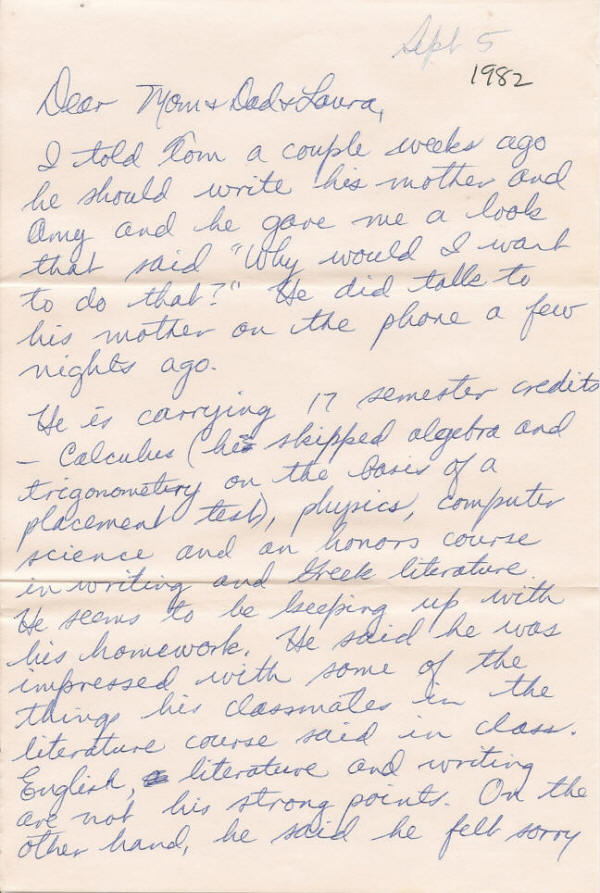 Sept 5
1982
Dear Mom & Dad & Laura,
I told Tom a couple weeks ago
he should write his mother and
Amy and he gave me a look
that said "Why would I want
to do that?" He did talk to
his mother on the phone a few
nights ago.
He is carrying 17 semester credits
- Calculus (he skipped algebra and
trigonometery on the basis of a
placement test), physics, computer
science and an honors course
in writing and Greek literature.
He seems to be keeping up with
his homework. He said he was
impressed with some of the
things his classmates in the
literature course said in class.
English, literature and writing
are not his strong points. On the
other hand, he said he felt sorry